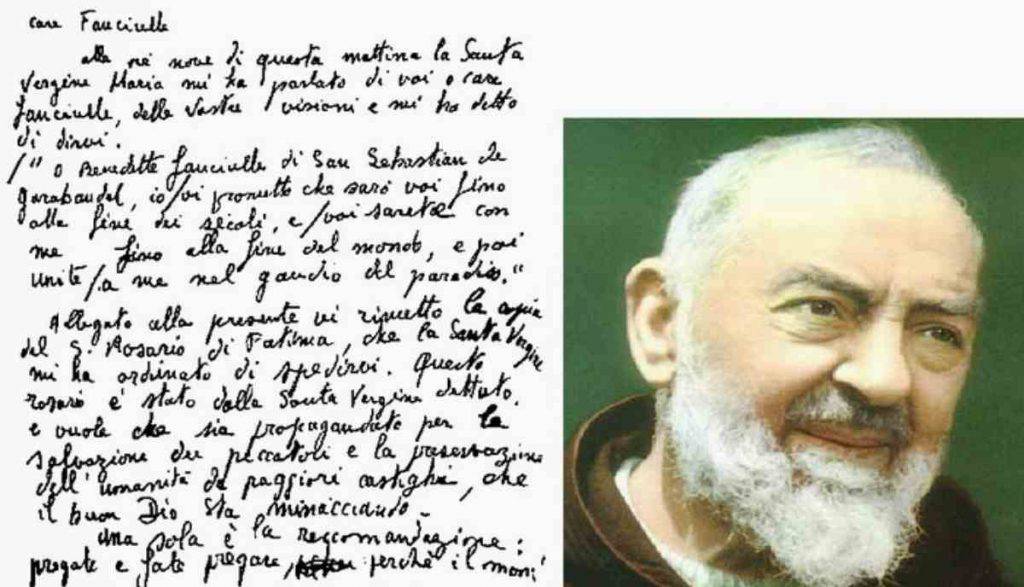 care Fanciulle
alle ore nove di questa mattina la Santa
Vergine Maria mi ha parlato di voi o care
fanciulle, delle vostre visioni e mi ha detto
di dirvi.
/" O Benedette fanciulle di San Sebastian de
garabandal, io /vi prometto che sarò voi fino
alla fine dei secoli, e /voi sarete con
me fino alla fine del mondo, e poi
unite /a me nel gaudio del paradiso."
Allegato alla presente vi rimetto la copia
del S. Rosario di Fatima, che la Santa Vergine
mi ha ordinato di spedirvi. Questo
rosario è stato dalla Santa Vergine dettato,
e vuole che sia propagandato per la
salvazione dei peccatori e la preservazione
dell'umanità da peggiori castighi, che
il buon Dio sta minacciando.
Una sola è la raccomandazione:
pregate e fate pregare, perchè il mon